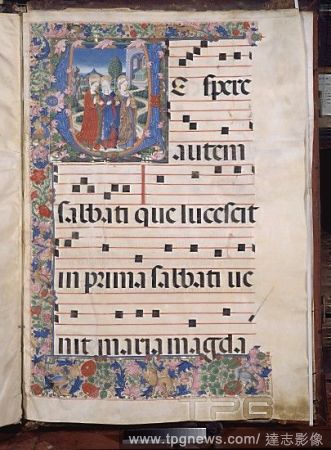 E spere
autem
sabbati que lucescit
in prima sabbati ve
nit maria magda
TPG
www.tpgnews.com/ 達志影像